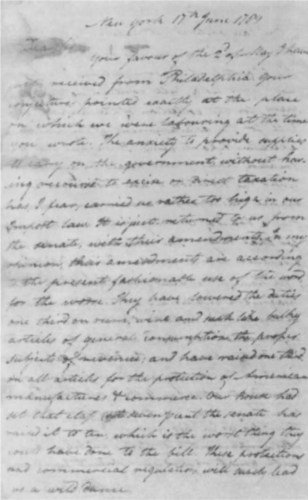 New York 17th June 1789
Dear Sir
Your favour of the 2d of May I have
received from Philadelphia your
conjecture pointed exactly at the place
on which we were labouring at the time
you wrote. The anxiety to provide supplies
to carry on the government without hav-
ing recourse to excise or direct taxation
has I fear, carried us rather too high in our
Impost law. It is just returned to us from
the senate, with their amendments. In my
opinion, their amendments are according
to the present fashionable use of the word
for the worse. They have lowered the duties
one third on rum, wine and such like bulky
articles of general consumption the proper
subjects of revenue; and have raised one third
on all articles for the protection of American
manufactures & commerce. Our house had
set that at seven per cent the senate has
raised it to ten which is the worst thing they
could have done to the bill. These protections
and commercial regulations will lead
us a wild dance.